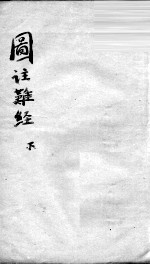 圖註難經 下